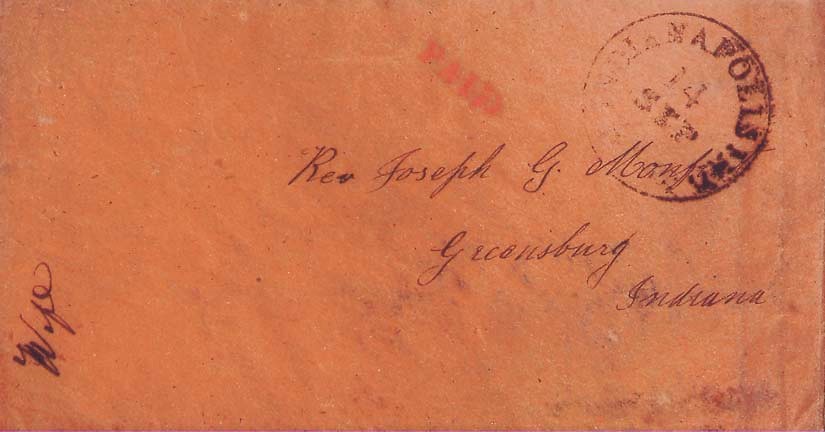 PAID
INDIANAPOLIS IND.
14
SEP
Rev Joseph G.
Greensburg
Indiana
Wife